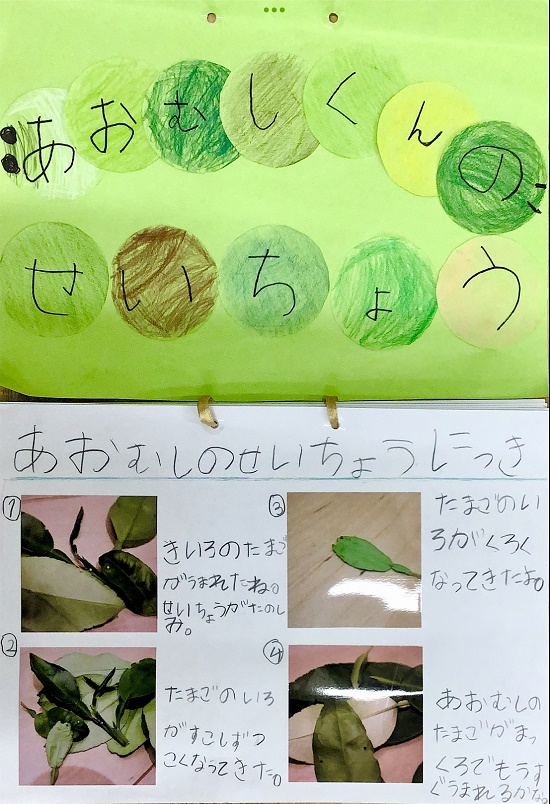 あおむしくんの
せいちょう
あおむしのせいちょうにっき
①
きいろのたまご
がうまれたね。
せいちょうがたのし
み。
②
たまごのいろ
がすこしずつ
こくなってきた。
③
たまごのい
ろがくろく
なってきたよ。
④
あおむしの
たまごがまっ
くろでもうす
ぐうまれるかな